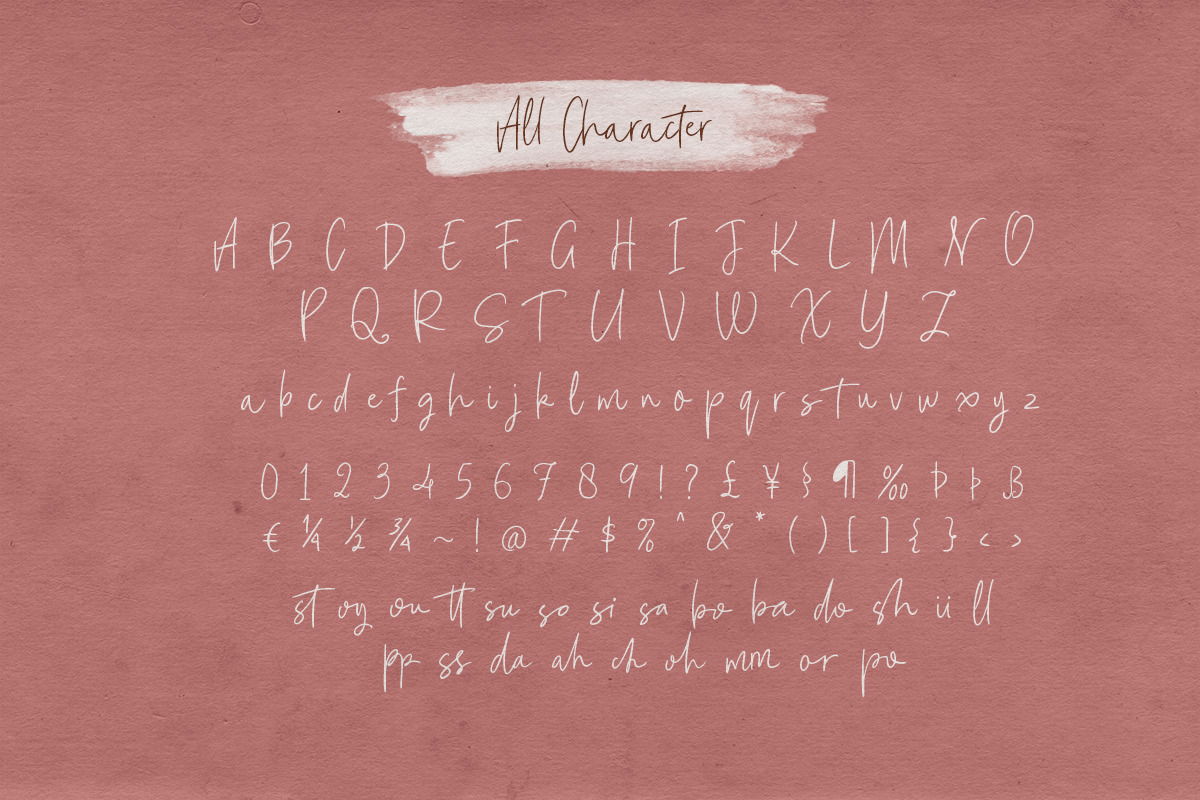 All Character
A B C D E F G H I J K L M N O
P Q R S T U V W X Y Z
a b c d e f g h i j k l m n o p q r s t u v w x y z
0 1 2 3 4 5 6 7 8 9 ! ? £ ¥ § ¶ ‰ Þ þ ß
€ ¼ ½ ¾ ~ ! @ # $ % ^ & * ( ) [ ] { } < >
st oy ou tt su so si sa bo ba do sh ii ll
pp ss da ah ch oh mm or po